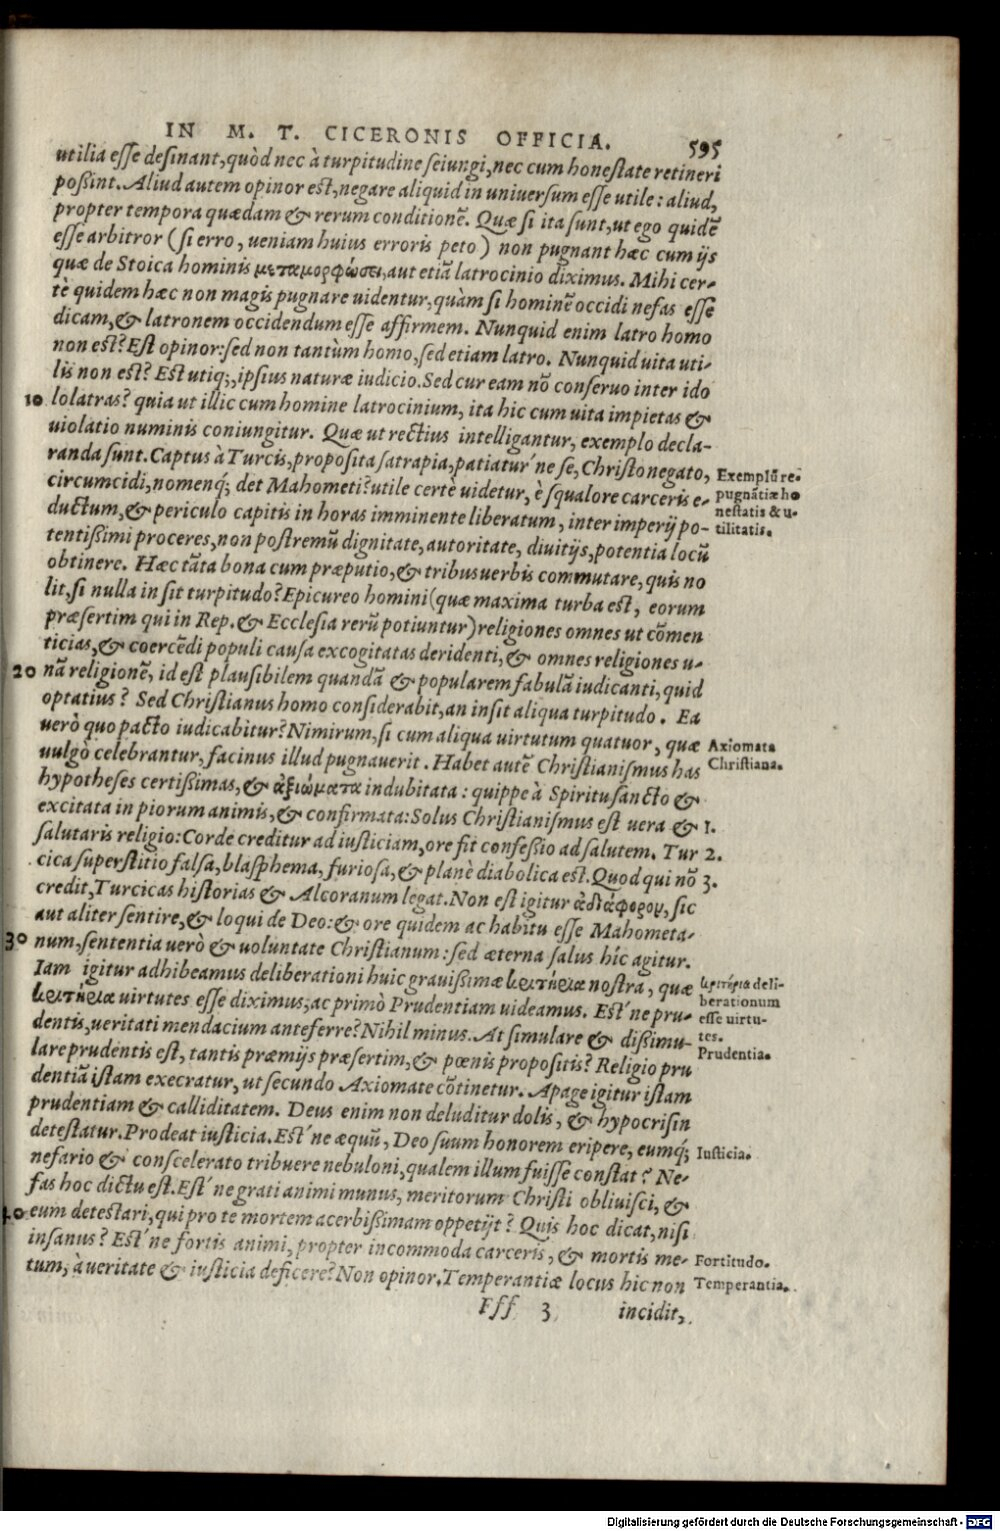 IN M. T. CICERONIS OFFICIA. 595
utilia esse desinant, quòd nec à turpitudine seiungi, nec cum honestate retineri
poßint. Aliud autem opinor est, negare aliquid in uniuersum esse utile: aliud,
propter tempora quædam & rerum conditionē. Quæ si ita sunt, ut ego quidē
esse arbitror (si erro, ueniam huius erroris peto) non pugnant hæc cum ijs
quæ de Stoica hominis μεταμορφώσει, aut etiā latrocinio diximus. Mihi cer-
tè quidem hæc non magis pugnare uidentur, quàm si hominē occidi nefas esse
dicam, & latronem occidendum esse affirmem. Nunquid enim latro homo
non est? Est opinor: sed non tantùm homo, sed etiam latro. Nunquid uita uti-
lis non est? Est utiq;, ipsius naturæ iudicio. Sed cur eam nō conseruo inter ido
10 lolatras? quia ut illic cum homine latrocinium, ita hic cum uita impietas &
uiolatio numinis coniungitur. Quæ ut rectius intelligantur, exemplo decla-
randa sunt. Captus à Turcis, proposita satrapia, patiatur´ne se, Christo negato,
circumcidi, nomenq́; det Mahometi? utile certè uidetur, è squalore carceris e-
ductum, & periculo capitis in horas imminente liberatum, inter imperij po-
tentißimi proceres, non postremū dignitate, autoritate, diuitijs, potentia locū
obtinere. Hæc tāta bona cum præputio, & tribus uerbis commutare, quis no
lit, si nulla insit turpitudo? Epicureo homini (quæ maxima turba est, eorum
præsertim qui in Rep. & Ecclesia rerū potiuntur) religiones omnes ut cōmen
ticias, & coercēdi populi causa excogitatas deridenti, & omnes religiones u-
20 nā religionē, id est plausibilem quandā & popularem fabulā iudicanti, quid
optatius? Sed Christianus homo considerabit, an insit aliqua turpitudo. Ea
uerò quo pacto iudicabitur? Nimirum, si cum aliqua uirtutum quatuor, quæ
uulgò celebrantur, facinus illud pugnauerit. Habet autē Christianismus has
hypotheses certißimas, & ἀξιώματα indubitata: quippe à Spiritu sancto &
excitata in piorum animis, & confirmata: Solus Christianismus est uera & 1.
salutaris religio: Corde creditur ad iusticiam, ore fit confeßio ad salutem. Tur 2.
cica superstitio falsa, blasphema, furiosa, & planè diabolica est. Quod qui nō 3.
credit, Turcicas historias & Alcoranum legat. Non est igitur ἀδιάφορον, sic
aut aliter sentire, & loqui de Deo: & ore quidem ac habitu esse Mahometa-
30 num, sententia uerò & uoluntate Christianum: sed æterna salus hîc agitur.
Iam igitur adhibeamus deliberationi huic grauißimæ κριτήρια nostra, quæ
κριτήρια uirtutes esse diximus; ac primò Prudentiam uideamus. Est´ne pru-
dentis, ueritati mendacium anteferre? Nihil minus. At simulare & dißimu-
lare prudentis est, tantis præmijs præsertim, & pœnis propositis? Religio pru
dentiā istam execratur, ut secundo Axiomate cōtinetur. Apage igitur istam
prudentiam & calliditatem. Deus enim non deluditur dolis, & hypocrisin
detestatur. Prodeat iusticia. Est´ne æquū, Deo suum honorem eripere, eumq́;
nefario & conscelerato tribuere nebuloni, qualem illum fuisse constat? Ne-
fas hoc dictu est. Est´ne grati animi munus, meritorum Christi obliuisci, &
40 eum detestari, qui pro te mortem acerbißimam oppetijt? Quis hoc dicat, nisi
insanus? Est´ne fortis animi, propter incommoda carceris, & mortis me-
tum, à ueritate & iusticia deficere? Non opinor. Temperantiæ locus hic non
Fff 3 incidit,
Exemplū re-
pugnātiæ ho
nestatis & u-
tilitatis.
Axiomata
Christiana.
κριτήρια deli-
berationum
esse uirtu-
tes.
Prudentia.
Iusticia.
Fortitudo.
Temperantia.
Digitalisierung gefördert durch die Deutsche Forschungsgemeinschaft - DFG